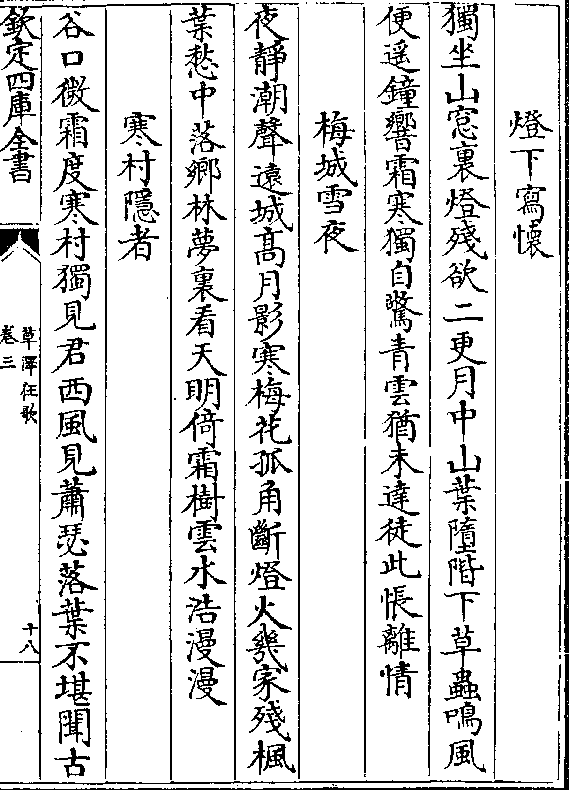 燈下寫懷
獨坐山窓裏燈殘欲二更月中山葉墮階下草蟲鳴風
便遥鐘響霜寒獨自驚青雲猶未達徒此悵離情
梅城雪夜
夜靜潮聲遠城髙月影寒梅花孤角斷燈火幾家殘楓
葉愁中落鄉林夢裏看天明倚霜樹雲水浩漫漫
寒村隱者
谷口微霜度寒村獨見君西風見蕭瑟落葉不堪聞古
欽定四庫全書
草澤狂歌
卷三
十八